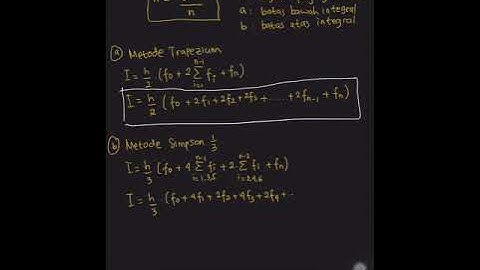 n
a : batas bawah integral
b : batas atas integral
(a) Metode Trapezium
I = h/2 . (f0 + 2 ∑_{i=1}^{n-1} fi + fn)
I = h/2 (f0 + 2f1 + 2f2 + 2f3 + ..... + 2fn-1 + fn)
(b) Metode Simpson 1/3
I = h/3 (f0 + 4 ∑_{i=1,3,5}^{n-1} fi + 2 ∑_{i=2,4,6}^{n-2} fi + fn)
I = h/3 . (f0 + 4f1 + 2f2 + 4f3 + 2f4 + ..